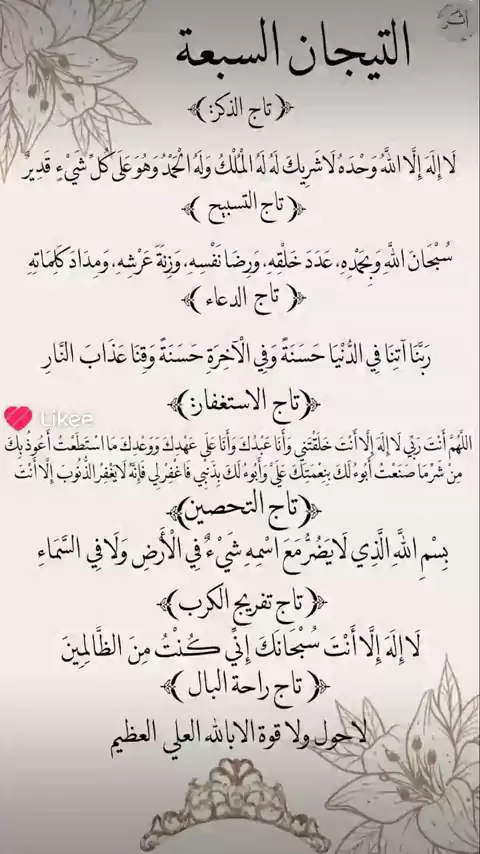 أثر
التيجان السبعة
﴿ تاج الذكر: ﴾
لَا إِلَهَ إِلَّا اللَّهُ وَحْدَهُ لَا شَرِيكَ لَهُ لَهُ الْمُلْكُ وَلَهُ الْحَمْدُ وَهُوَ عَلَى كُلِّ شَيْءٍ قَدِيرٌ
﴿ تاج التسبيح ﴾
سُبْحَانَ اللَّهِ وَبِحَمْدِهِ، عَدَدَ خَلْقِهِ، وَرِضَا نَفْسِهِ، وَزِنَةَ عَرْشِهِ، وَمِدَادَ كَلِمَاتِهِ
﴿ تاج الدعاء ﴾
رَبَّنَا آتِنَا فِي الدُّنْيَا حَسَنَةً وَفِي الْآخِرَةِ حَسَنَةً وَقِنَا عَذَابَ النَّارِ
﴿تاج الاستغفار:﴾
Likee
اللَّهُمَّ أَنْتَ رَبِّي لَا إِلَهَ إِلَّا أَنْتَ خَلَقْتَنِي وَأَنَا عَبْدُكَ وَأَنَا عَلَى عَهْدِكَ وَوَعْدِكَ مَا اسْتَطَعْتُ أَعُوذُ بِكَ
مِنْ شَرِّ مَا صَنَعْتُ أَبُوءُ لَكَ بِنِعْمَتِكَ عَلَيَّ وَأَبُوءُ لَكَ بِذَنْبِي فَاغْفِرْ لِي فَإِنَّهُ لَا يَغْفِرُ الذُّنُوبَ إِلَّا أَنْتَ
﴿تاج التحصين﴾
بِسْمِ اللَّهِ الَّذِي لَا يَضُرُّ مَعَ اسْمِهِ شَيْءٌ فِي الْأَرْضِ وَلَا فِي السَّمَاءِ
﴿ تاج تفريج الكرب ﴾
لَا إِلَهَ إِلَّا أَنْتَ سُبْحَانَكَ إِنِّي كُنْتُ مِنَ الظَّالِمِينَ
﴿ تاج راحة البال ﴾
لا حول ولا قوة الا بالله العلي العظيم